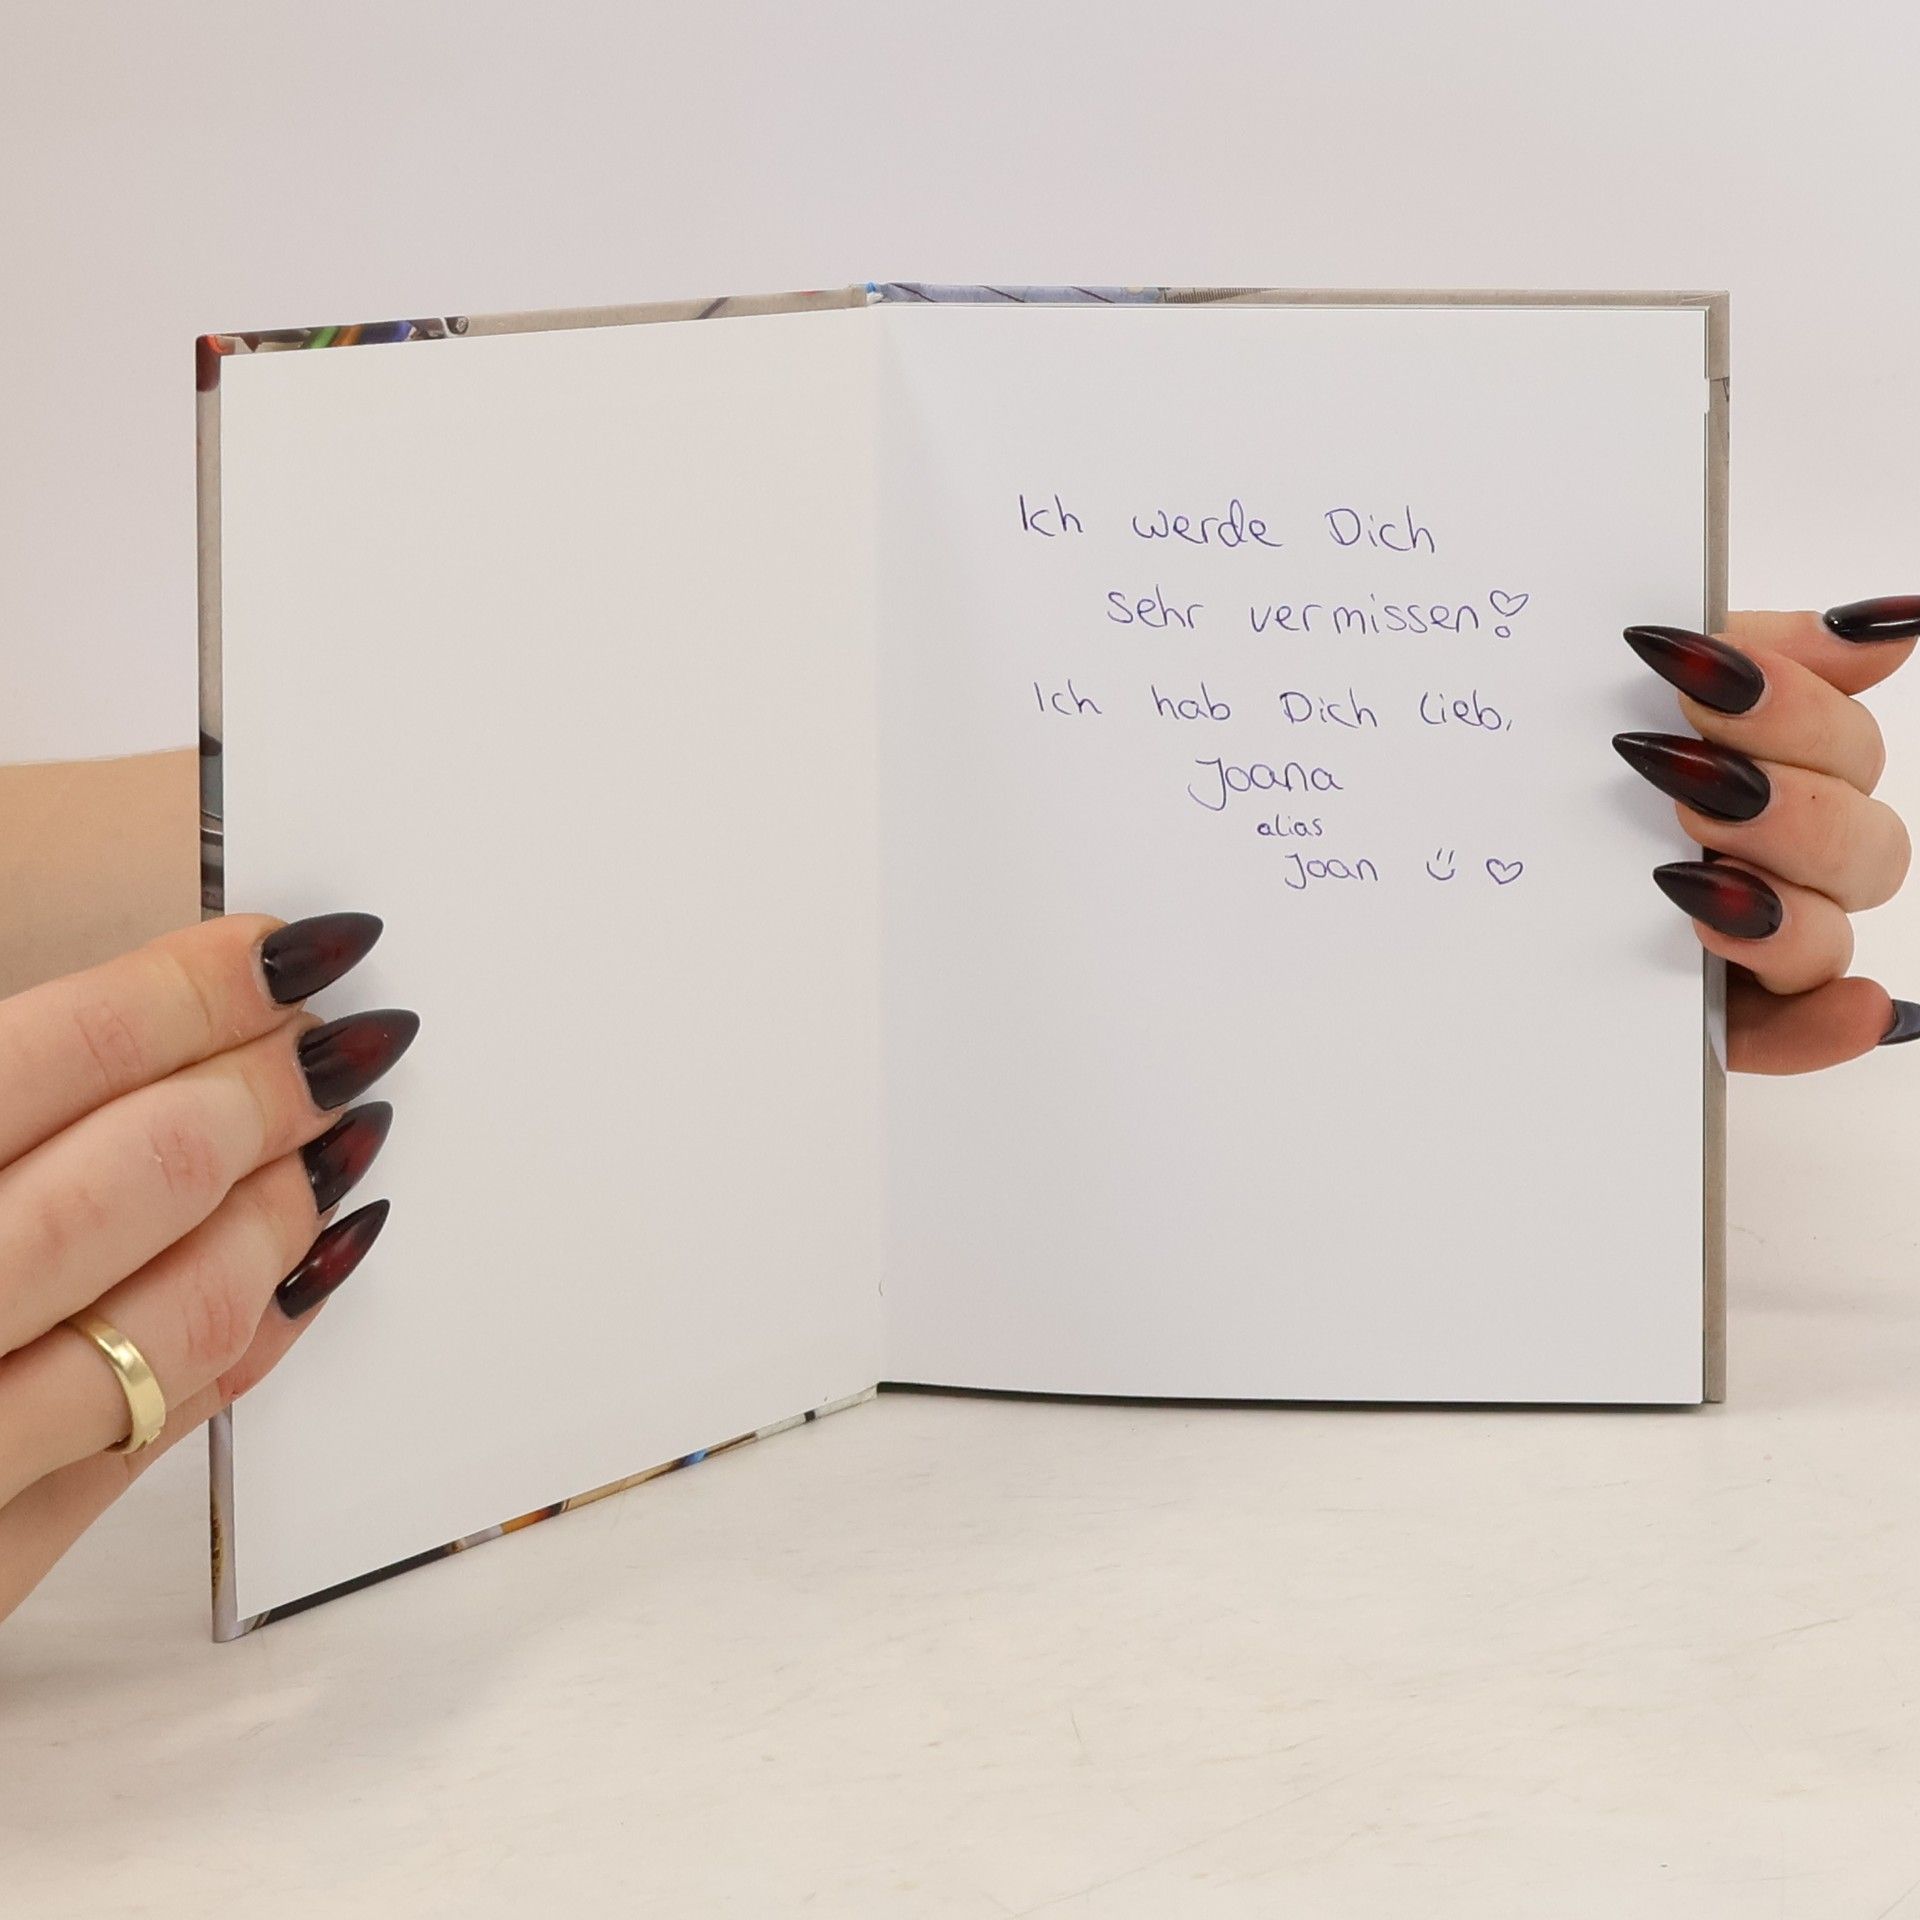 Ich werde Dich
sehr vermissen!
Ich hab Dich lieb,
Joana
alias
Joan ♡